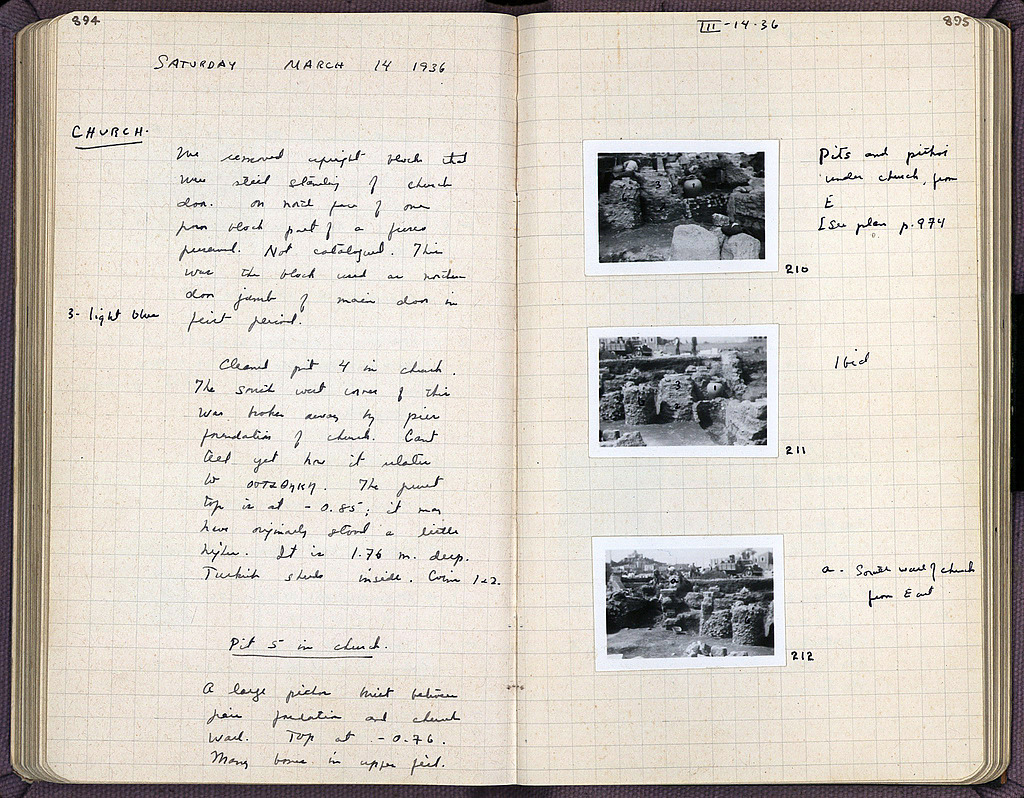 894
SATURDAY MARCH 14 1936
CHURCH.
We removed upright block that
was still standing of church
door. On north face of one
poros block part of a fresco
preserved. Not catalogued. This
was the block used as northern
door jamb of main door in
3- light blue
first period.
Cleaned pit 4 in church.
The south west corner of this
was broken away by pier
foundation of church. Cant
tell yet how it relates
to οστεοθηκη. The present
top is at - 0.85; it may
have originally stood a little
higher. It is 1.76 m. deep.
Turkish sherds inside. Coins 1+2.
Pit 5 in church.
A large pithos built between
pier foundation and church
wall. Top at - 0.76.
Many bones in upper fill.
III-14-36
895
Pits and pithoi
under church, from
E
[See plan p. 974
3
1
210
Ibid
3
1
211
a. South wall of church
from East
212